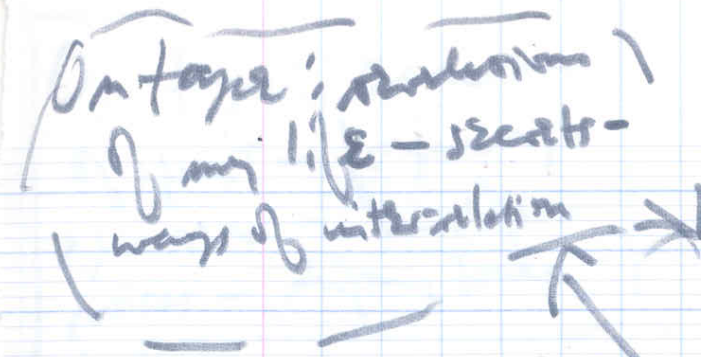 On tape: revelations
of my life - secrets -
ways of interrelation